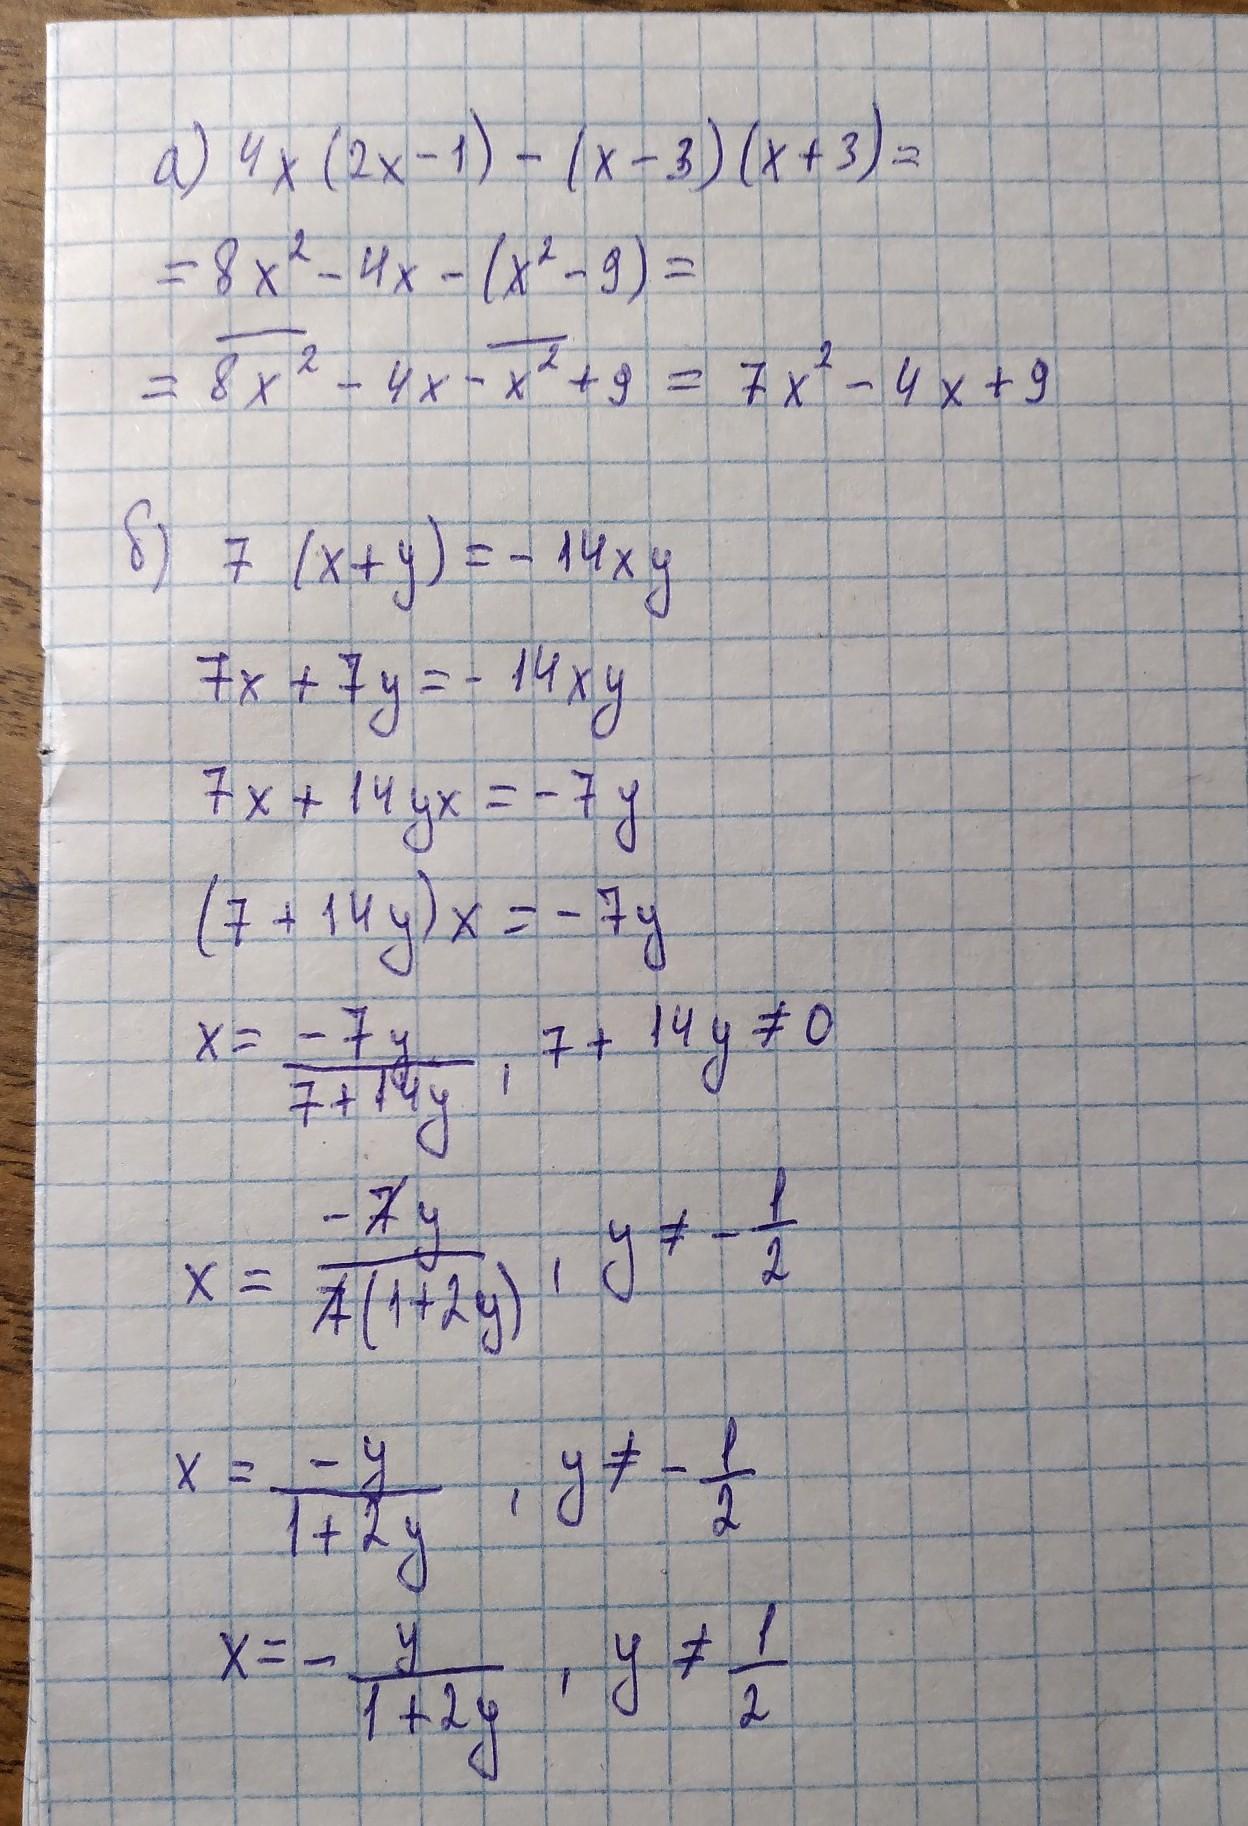 а) 4x(2x-1)-(x-3)(x+3)=
=8x²-4x-(x²-9)=
=8x²-4x-x²+9=7x²-4x+9
б) 7(x+y)=-14xy
7x+7y=-14xy
7x+14yx=-7y
(7+14y)x=-7y
x=-7y/7+14y, 7+14y≠0
x=-7y/7(1+2y), y≠-1/2
x=-y/1+2y, y≠-1/2
x=-y/1+2y, y≠1/2